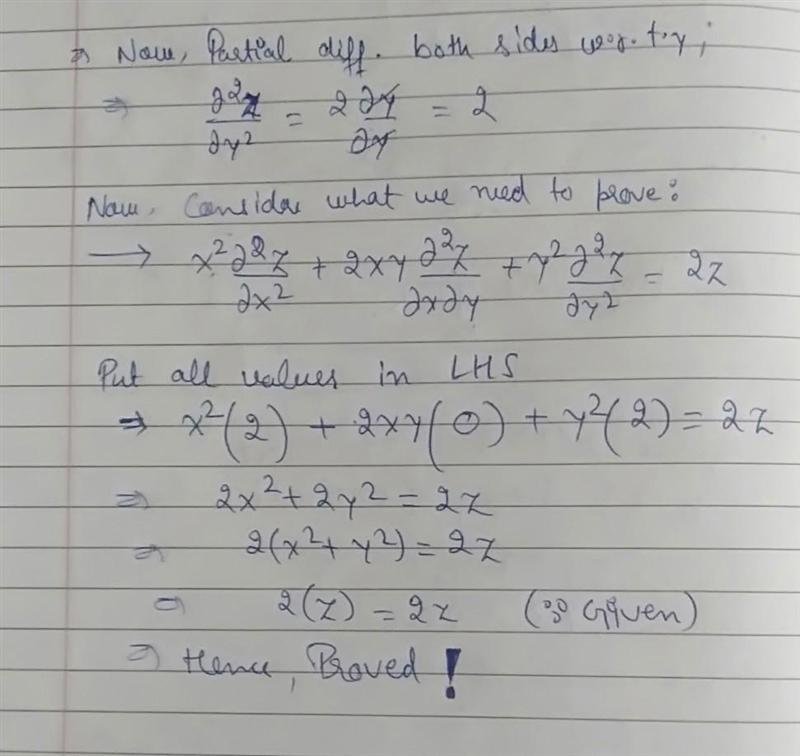 ⇒ Now, Partial diff. both sides w.r.t. y,
⇒ ∂²z/∂y² = 2 ∂y/∂y = 2
Now, Consider what we need to prove:
→ x² ∂²z/∂x² + 2xy ∂²z/∂x∂y + y² ∂²z/∂y² = 2z
Put all values in LHS
⇒ x²(2) + 2xy(0) + y²(2) = 2z
⇒ 2x² + 2y² = 2z
⇒ 2(x² + y²) = 2z
⇒ 2(z) = 2z (∵ Given)
⇒ Hence, Proved!